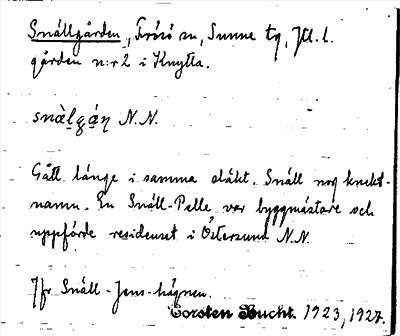 Snällgården, Frösö sn, Sunne tg, Jtl. l.
gården n:r 2 i Knytta.
snä̀lgáɳ N.N.
Gått länge i samma släkt. Snäll nog knekt-
namn. En Snäll-Pelle var byggmästare och
uppförde residenset i Östersund N.N.
Jfr Snäll-Jens-hägnen.
Torsten Bucht. 1923, 1927.